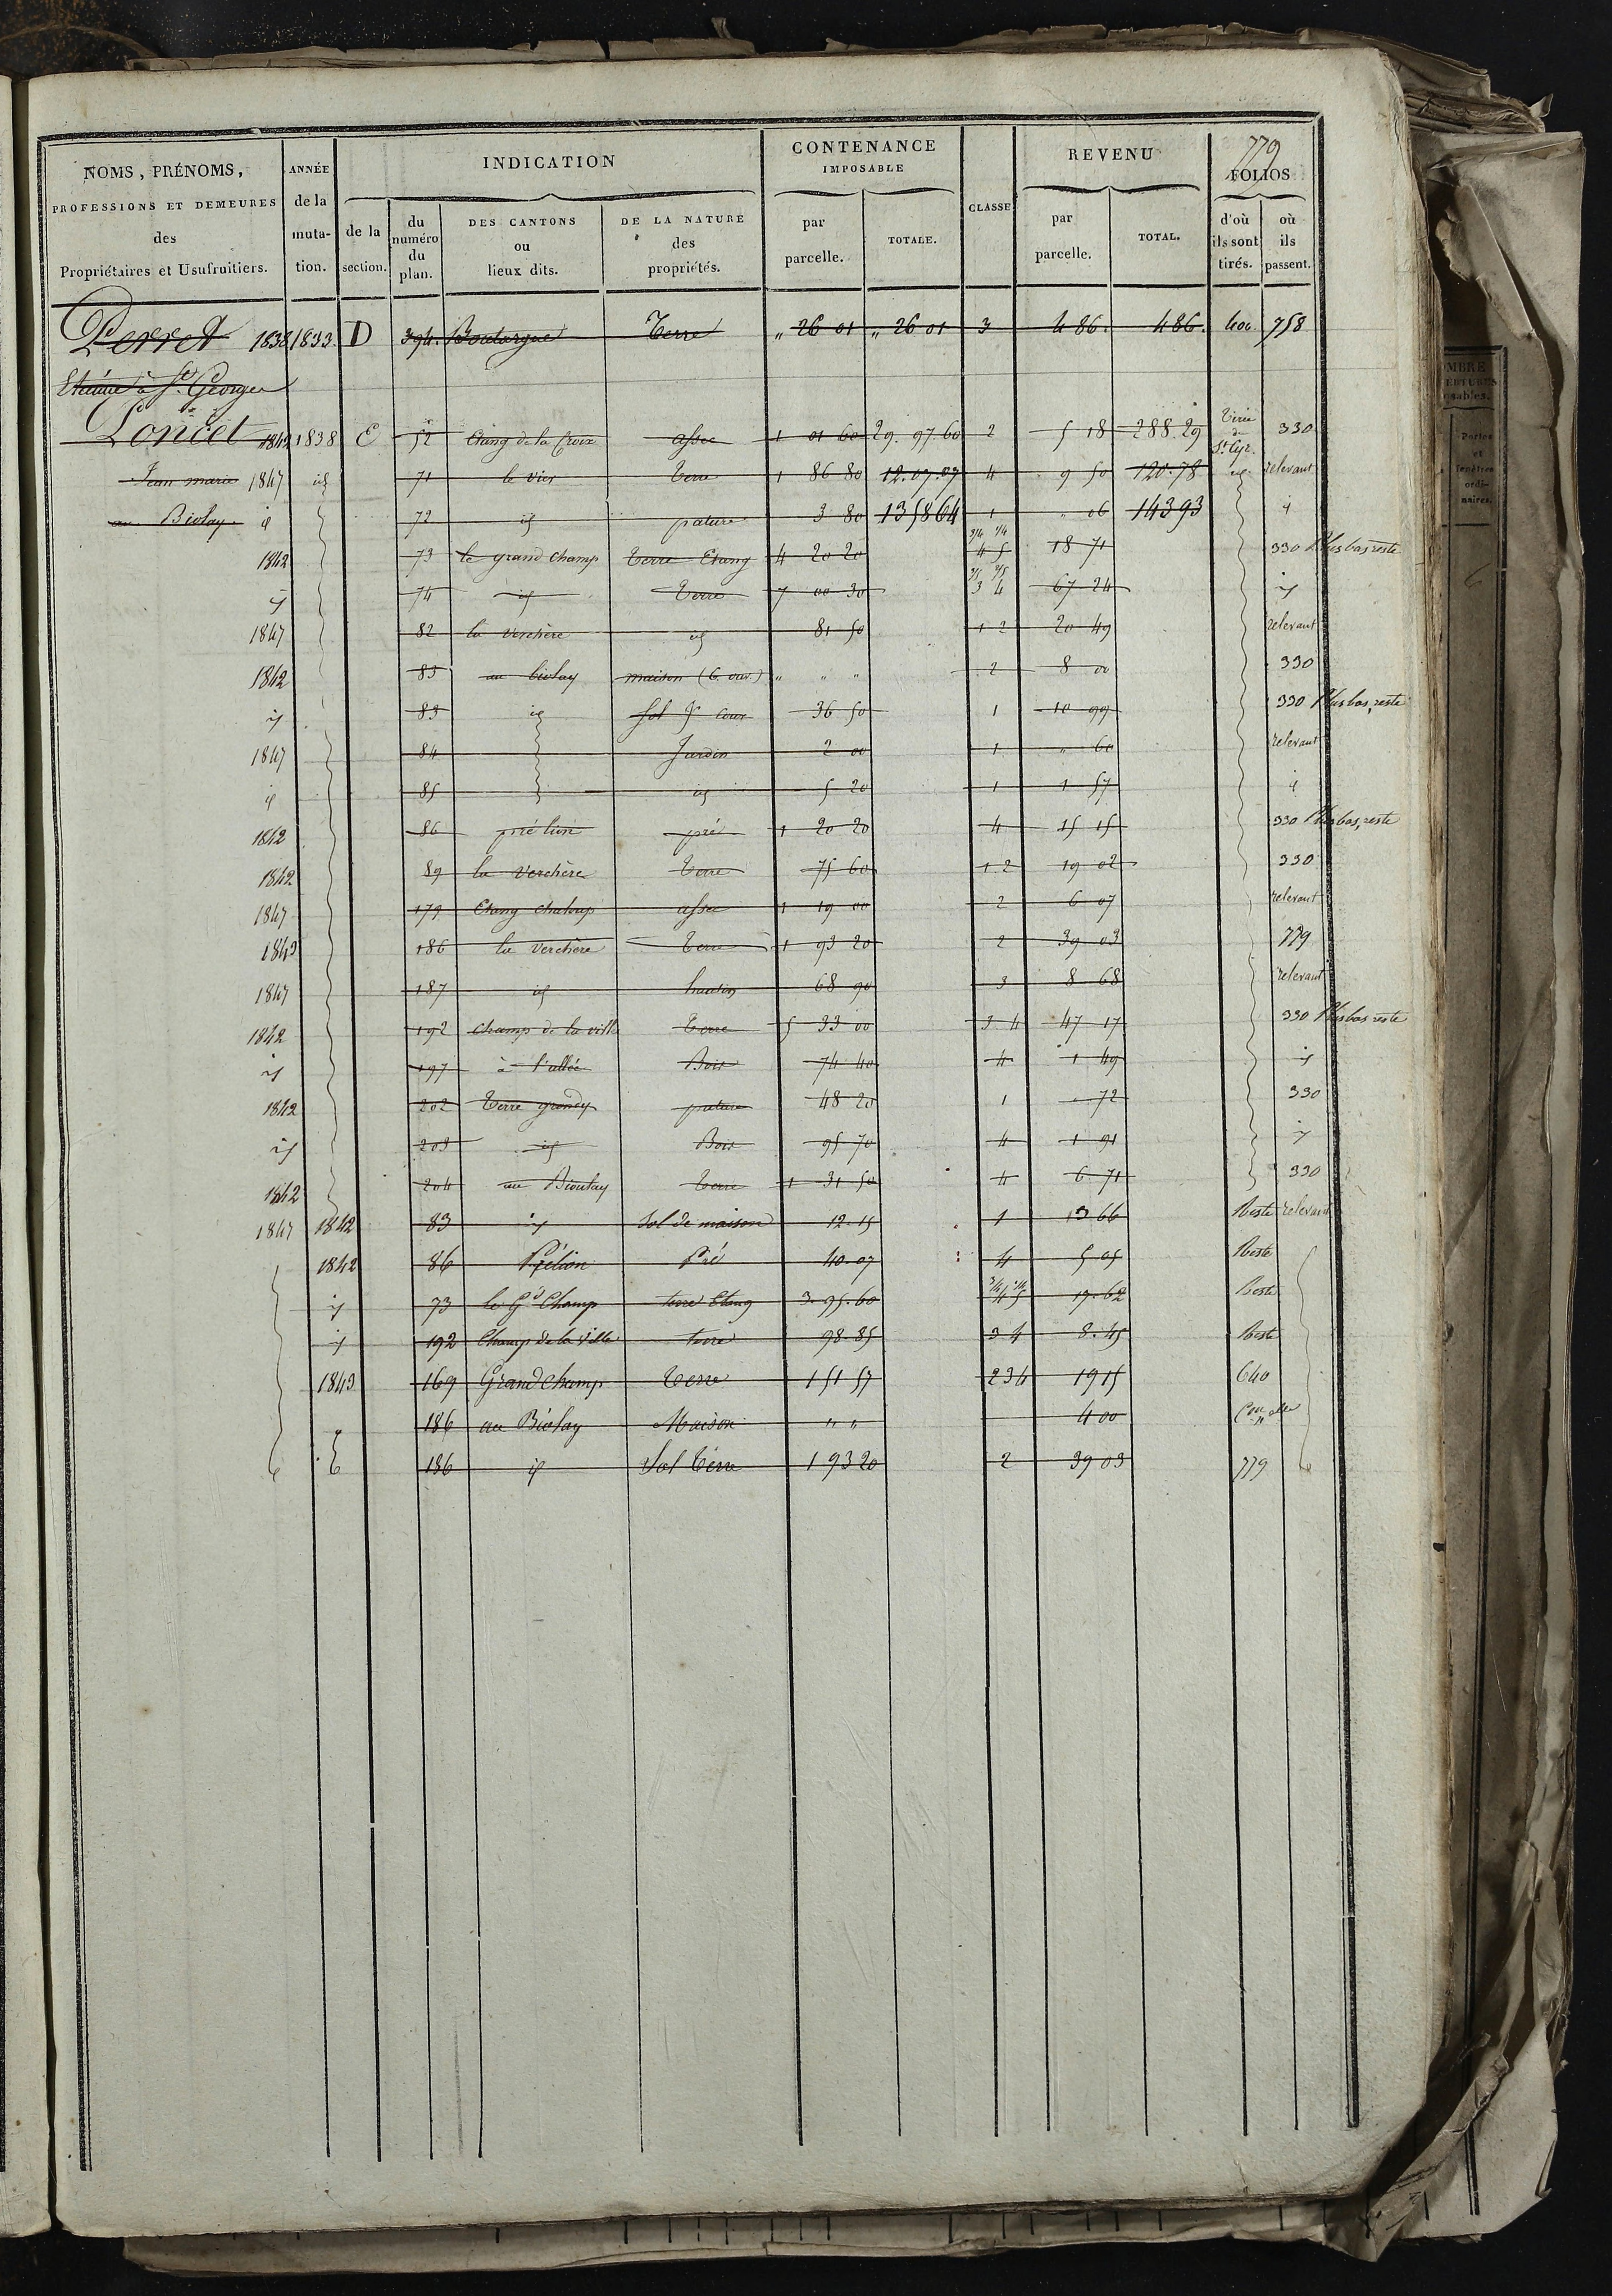 779
NOMS, PRÉNOMS, ANNÉE INDICATION CONTENANCE IMPOSABLE CLASSE REVENU FOLIOS
PROFESSIONS ET DEMEURES des Propriétaires et Usufruitiers. de la mutation. de la section. du numéro du plan. DES CANTONS ou lieux dits. DE LA NATURE des propriétés. par parcelle. TOTALE. par parcelle. TOTAL. d'où ils sont tirés. où ils passent.
Perret 1838 1833 D 394. Terre " 26 01 " 26 01 3 4 86. 4 86. 400 758
Etienne à St. Georges
Loncet 1842 1838 E 52 Etang de la Croix assec 1 01 60 29. 97. 60 2 5 18 288. 29 Tirée de St. Cyr. 330
Jean marie 1847 id 71 le vier Terre 1 86 80 12. 07. 07 4 9 50 120. 78 id relevant
au Biolay id 72 id pature 3 80 13 58 64 1 " 06 143 93 id
1842 73 le grand champ Terre Etang 4 20 20 3/4 1/4 4 5 18 71 330 Plus bas reste
id 74 id Terre 7 00 30 3 4 67 24 id
1847 82 la verchère id 81 50 1 2 20 49 relevant
1842 83 au biolay maison (6 ouv.) " " " 2 8 00 330
id 83 id Sol & cour 36 50 1 10 99 330 Plus bas, reste
1847 84 Jardin 2 00 1 " 60 relevant
id 85 id 5 20 1 1 57 id
1842 86 pré lion pré 1 20 20 4 15 15 330 Plus bas, reste
1842 89 la verchère Terre 75 60 1 2 19 02 330
1847 179 Etang assec 1 19 00 2 6 07 relevant
1843 186 la verchère Terre 1 93 20 2 39 03 779
1847 187 id hautin 68 90 3 8 68 relevant
1842 192 champ de la ville Terre 5 33 00 3 4 47 17 330 Plus bas reste
id 197 à l'allée Bois 74 40 4 1 49 id
1842 202 Terre pature 48 20 1 " 72 330
id 203 id Bois 95 70 4 1 91 id
1842 204 au Bioulay Terre 1 31 50 4 6 71 330
1847 1842 83 id Sol de maison 12. 15 1 13 66 Reste relevant
1842 86 Prélion Pré 40. 07 4 5 05 Reste
id 73 le Gd Champ terre Etang 3. 95. 60 3/4 1/4 4 5 17. 62 Reste
id 192 Champ de la Ville terre 98. 85 3 4 8. 45 Reste
1843 169 Grand Champ Terre 1 51 57 2 3 4 19 15 640
186 au Biolay Maison " " 4 00 Con nelle
186 id Sol Terre 1 93 20 2 39 03 779
OMBRE
Portes
et
fenêtres
ordi-
naires.